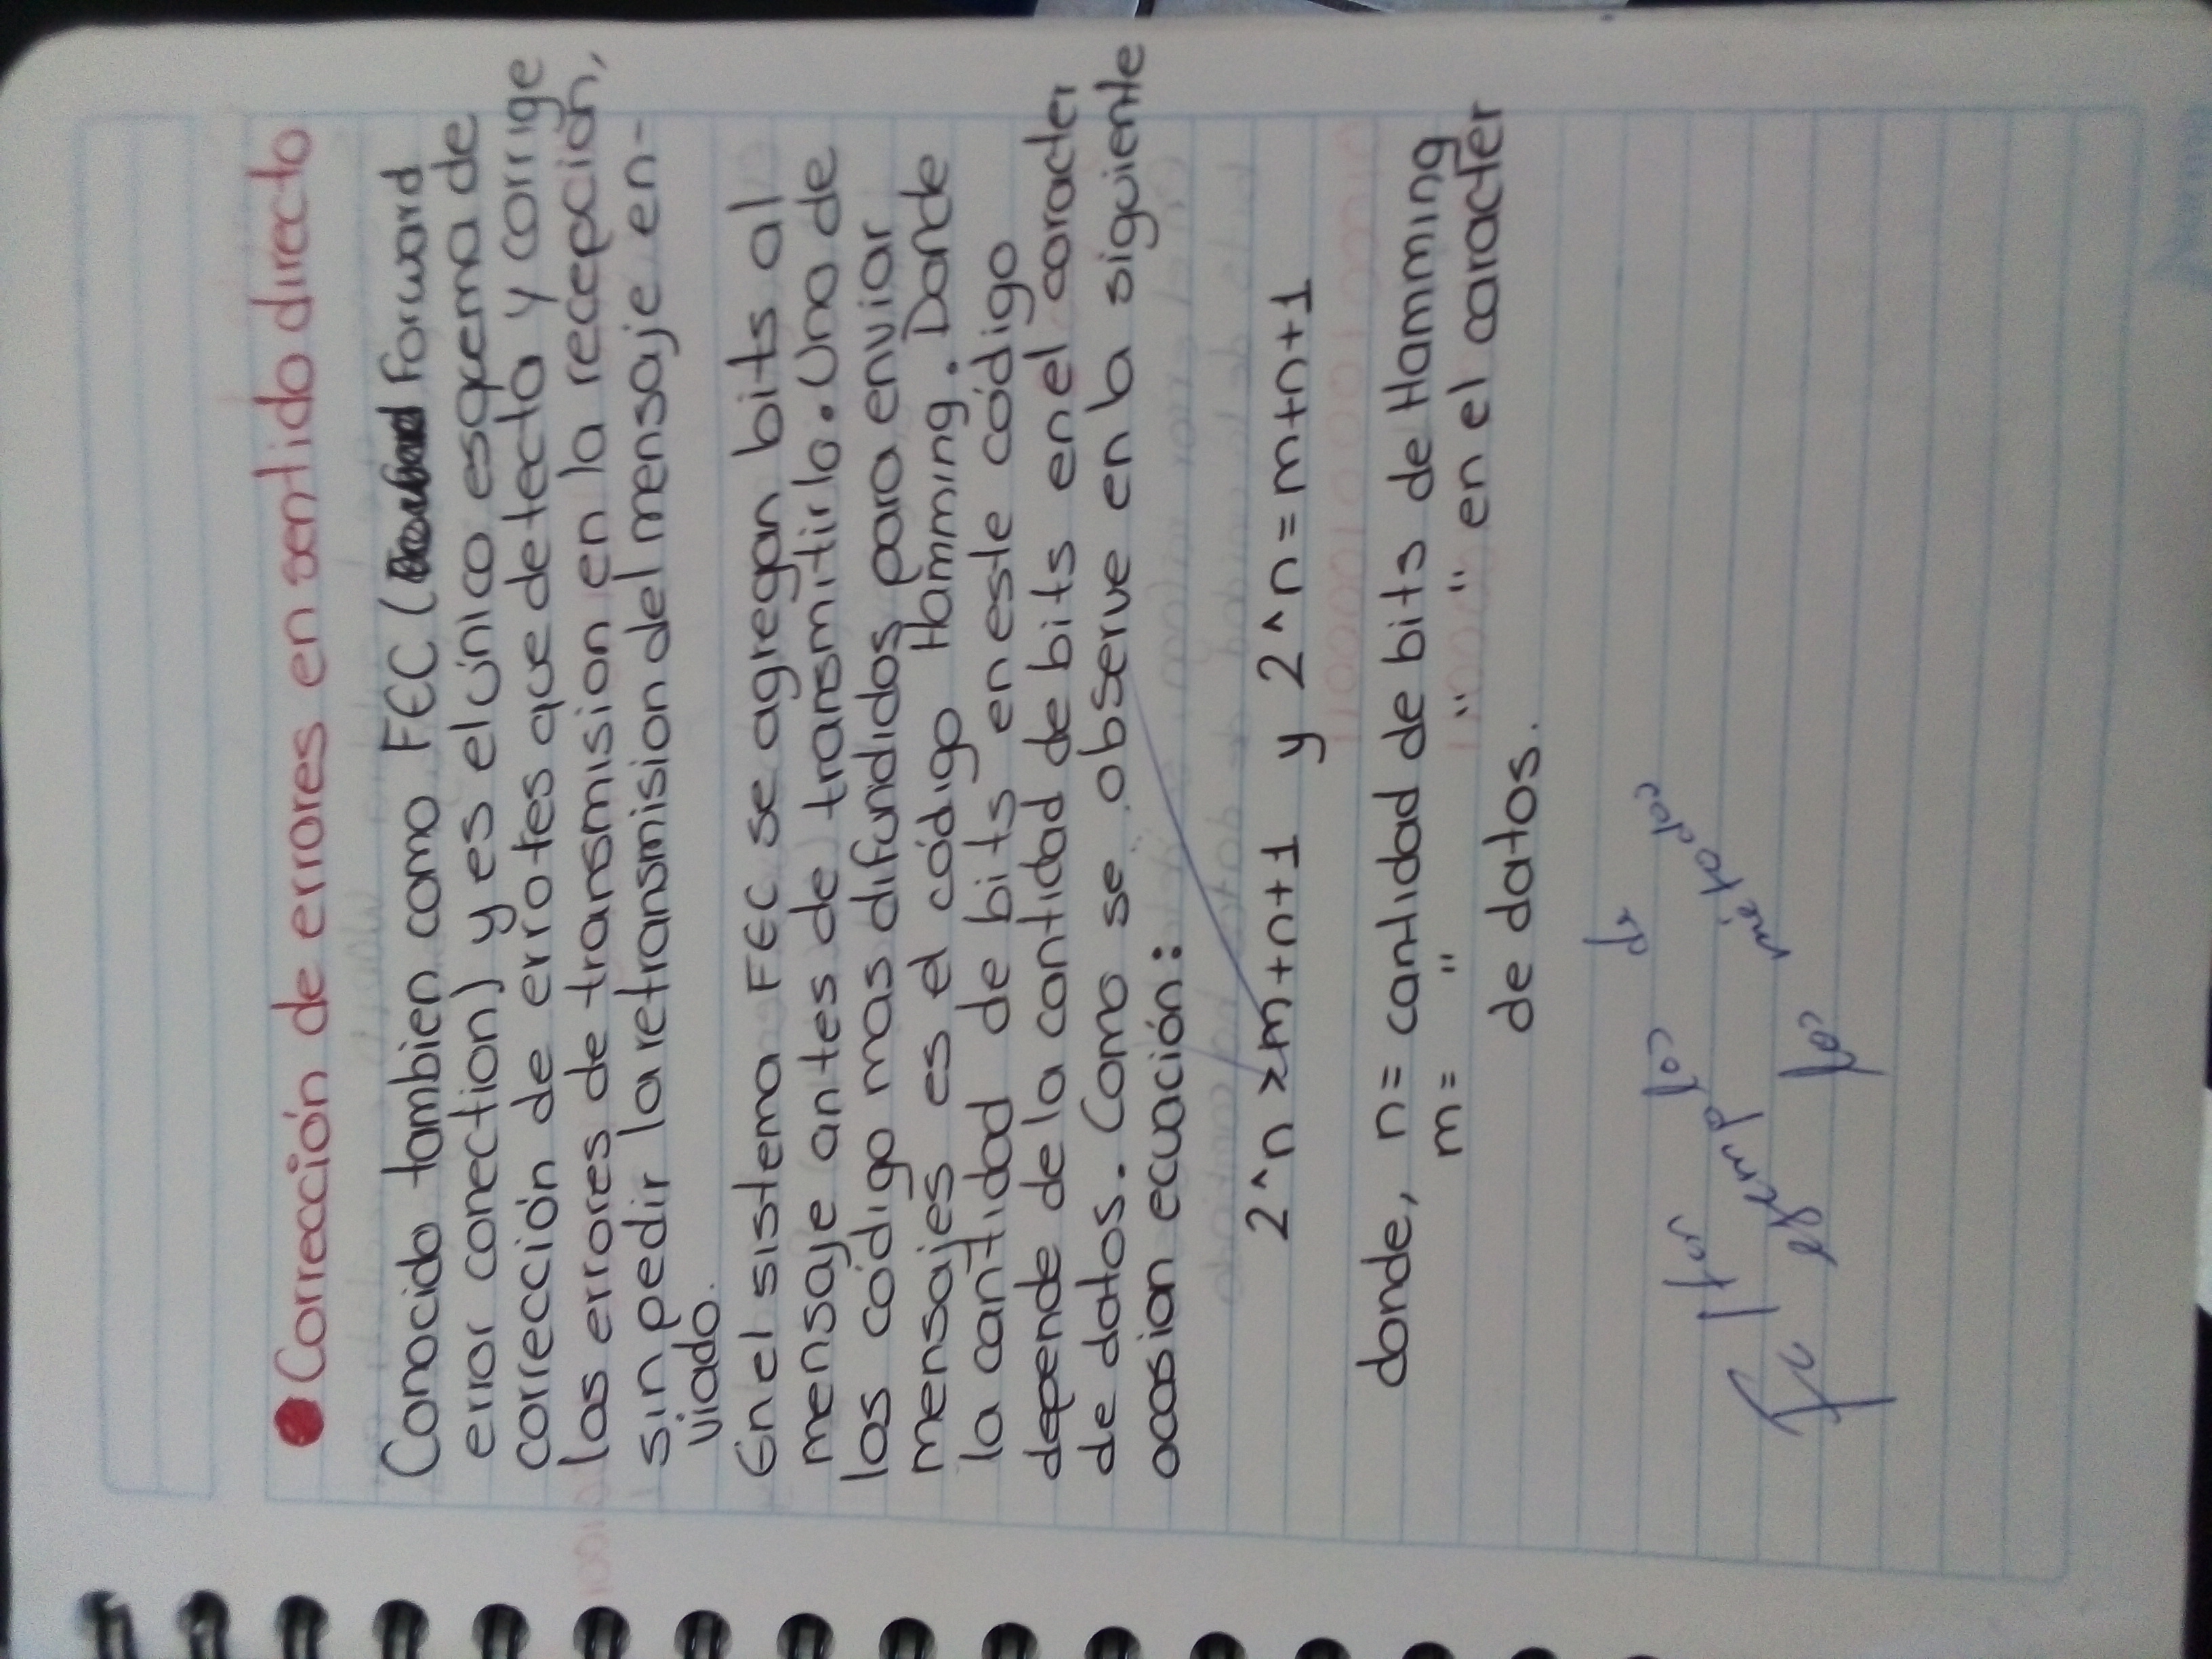 Corrección de errores en sentido directo
Conocido tambien como FEC ( Forward
error conection) y es el único esquema de
corrección de errotes que detecta y corrige
los errores de transmision en la recepción,
sin pedir la retransmision del mensaje en-
viado.
En el sistema FEC se agregan bits al
mensaje antes de transmitirlo. Uno de
los código mas difundidos para enviar
mensajes es el código Hamming. Donde
la cantidad de bits en este código
depende de la cantidad de bits en el caracter
de datos. Como se observe en la siguiente
ocasion ecuación:
2^n ≥m+n+1 y 2^n=m+n+1
donde, n= cantidad de bits de Hamming
m= " " " en el caracter
de datos.
Te faltan
los
ejemplos de
los métodos